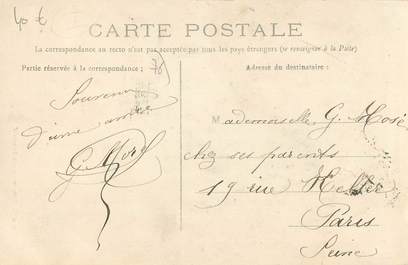 40 €
CARTE POSTALE
La correspondance au recto n'est pas acceptée par tous les pays étrangers (se renseigner à la Poste)
Partie réservée à la correspondance :
78
Adresse du destinataire :
Souvenir
d'une amie
G. Morel
Mademoiselle G. Mosé
chez ses parents
19 rue
Paris
Seine